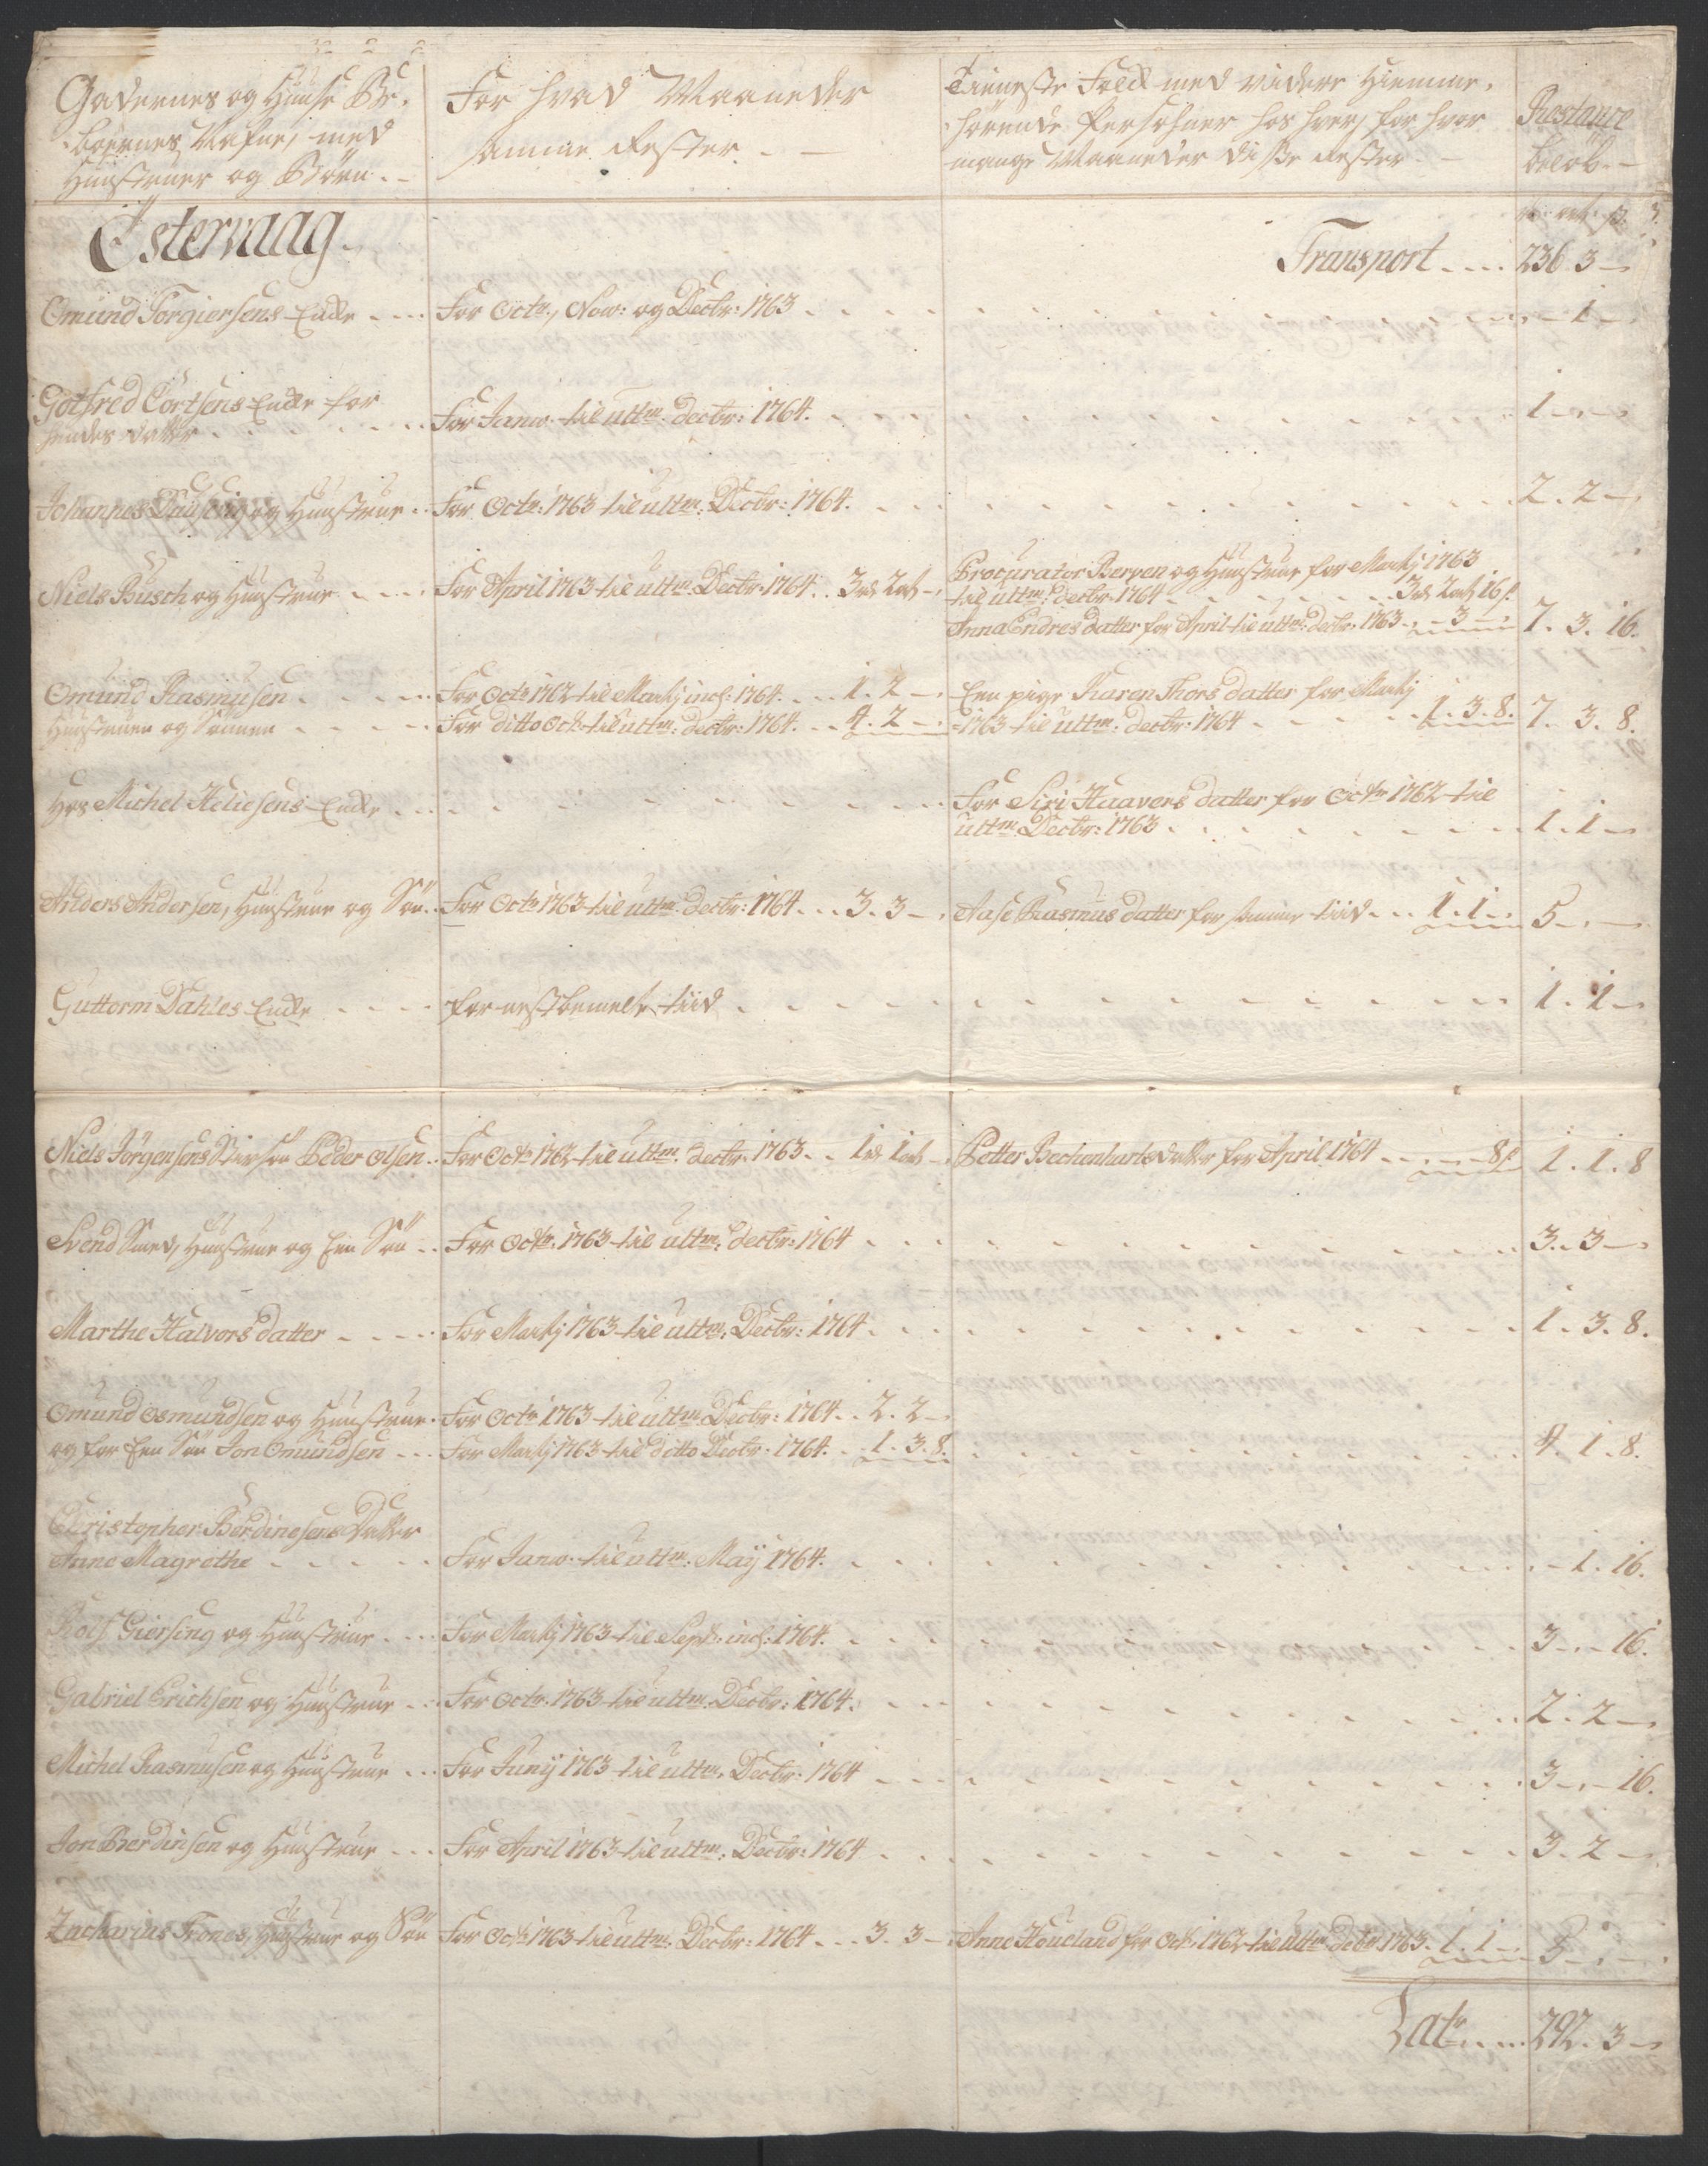 Gadernes og Huuse Be-
boernes Nafne, med
Hustruer og Børn. -
For hvad Maaneder
samme Rester. -
Tieneste Folck med videre Hiemme-
hørende Persohner hos hver, for hvor
mange Maaneder disse Rester -
Restance
beløb. -
Østervaag.
Transport .... 236. 3 -
Omund Torgiersens Encke .... For Octr., Nov: og Decbr: 1763 . . . . - 1 -
Gotfred Cortsens Encke for
hendes datter . . . . For Janv. til ultm. decbr: 1764. . . . 1 - -
Johannes Tausen og Hustrue .. For Octr: 1763 til ultm: Decbr: 1764. . . . 2. 2 -
Niels Busch og Hustrue .... For April 1763 til ultm: Decbr. 1764 .. 3 rd 2 ort -
Procurator Bergen og Hustrue for Martj 1763
til ultm: decbr. 1764 . . . . 3 rd 2 ort 16 s.
Anna Endres datter for April til ultm: decbr. 1763 .. - 3 - 7. 3. 16.
Omund Rasmusen . . . . For Octr 1762 til Martj incl. 1764. ... 1. 2 -
Hustruen og Sønnen . . . . For ditto Oct. til ultm: decbr: 1764. .. 4. 2 -
Een pige Karen Thors datter for Martj
1763 til ultm: decbr: 1764 . . . . 1. 3. 8. 7. 3. 8.
Hos Michel Heliesens Encke . . . .
For Siri Haavers datter for Octr 1762 til
ultm. Decbr: 1763 . . . . 1. 1 -
Anders Andersen, Hustrue og Søn .. For Octr 1763 til ultm. decbr: 1764 ... 3. 3 -. Aase Rasmus datter for samme tiid ... 1. 1 - 5 - -
Guttorm Dahles Encke . . . . for nestbemelte tiid . . . . 1. 1 -
Niels Jørgensens Stifsøn Peder Olsen .. For Octr 1762 til ultm. decbr. 1763 .. 1 rd 1 ort - Petter Bechenharts datter for April 1764 .... 8 s. 1. 1. 8
Svend Smed, Hustrue og Een Søn .. For Octr. 1763 til ultm: decbr: 1764 . . . . 3. 3 -
Marthe Halvors datter .... For Martj 1763 til ultm: Decbr: 1764 . . . . 1. 3. 8.
Omund Osmundsen og Hustrue . For Octr 1763 til ultm. Decbr: 1764 .. 2. 2 -
og for Een Søn Jon Omundsen ... For Martj 1763 til ditto Decbr. 1764. .. 1. 3. 8. . . . 4. 1. 8.
Christopher Berdinesens Datter
Anne Magrethe . . . . For Janv. til ultm: Maij 1764. . . . - 1. 16.
Rolf Giersing og Hustrue .... For Martj 1763 til Septr. incl: 1764. . . . 3 - 16.
Gabriel Erichsen og Hustrue .. For Octr. 1763 til ultm. Decbr: 1764. . . . 2. 2 -
Michel Rasmusen og Hustrue ... For Junij 1763 til ultm. Decbr. 1764 . . . . 3 - 16.
Jon Berdinsen og Hustrue ... For April 1763 til ultm: Decbr: 1764 . . . . 3. 2 -
Zacharias Trones, Hustrue og Søn For Octr 1763 til ultm: Decbr: 1764 ... 3. 3 - Anne Houeland for Oct. 1762 til ultm decbr 1763. 1. 1 - 5 - -
Latr .... 292. 3 -